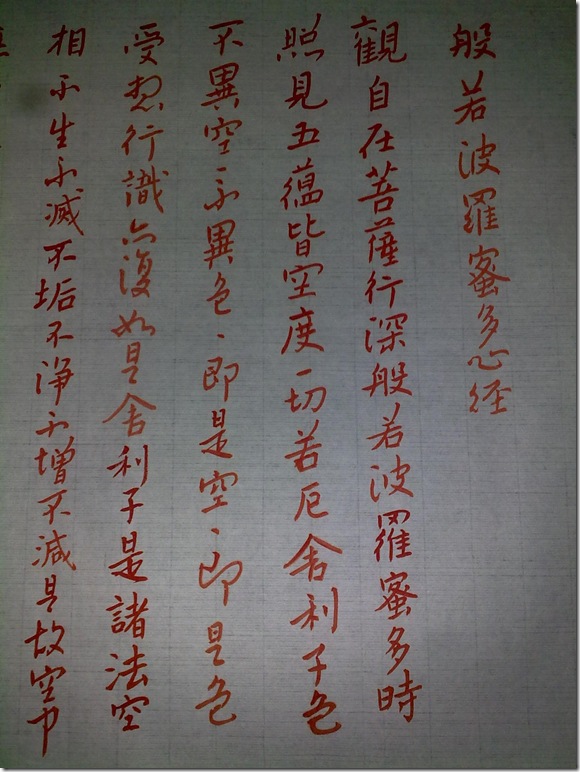 般若波羅蜜多心経
觀自在菩薩行深般若波羅蜜多時
照見五蘊皆空度一切若厄舍利子色
不異空、不異色、即是空、即是色
受想行識亦復如是舍利子是諸法空
相不生不滅不垢不淨不增不減是故空中